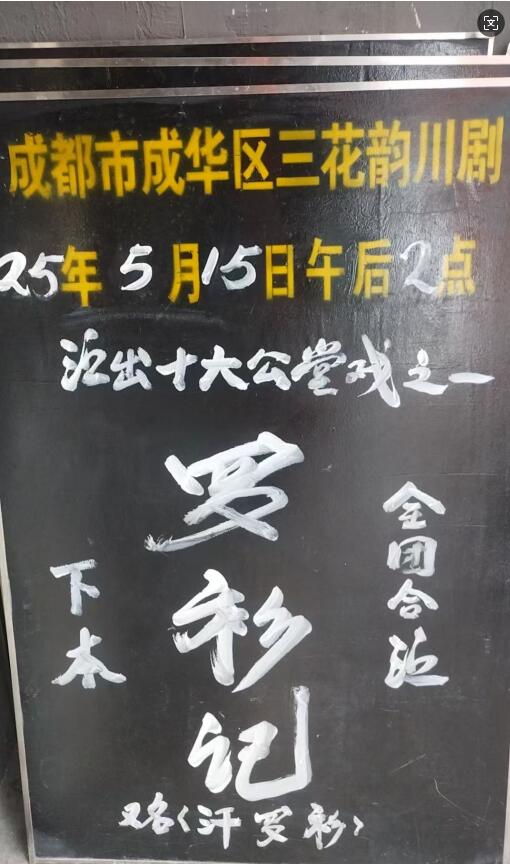 成都市成华区三花韵川剧
25年5月15日午后2点
演出十六公堂戏之一
罗衫记
全团合演
下本
又名〈汗罗衫〉